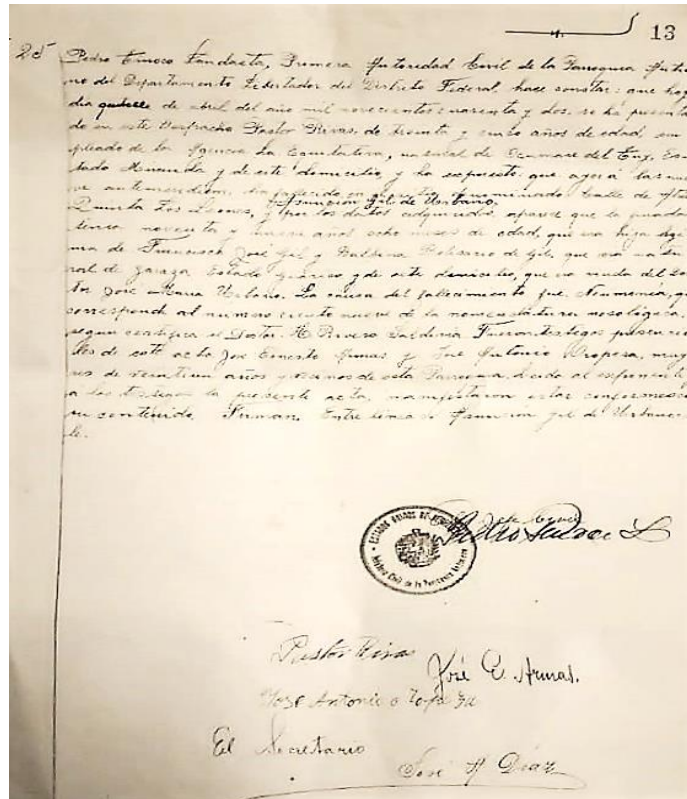 13
25 Pedro Tinoco Landaeta, Primera Autoridad Civil de la Parroquia
del Departamento Libertador del Distrito Federal, hace constar: que hoy
dia de abril del año mil novecientos cuarenta y dos, se ha presenta
do en este Despacho Pastor Rivas, de treinta y años de edad, em
pleado de la Agencia La Equitativa, natural de Ocumare del Tuy, Es
tado Miranda y de este domicilio, y ha expuesto: que ayer á las nue
ve antemeridiem, ha fallecido en Calle de
Asunción Gil de Urbano.
Quinta Los Leones, y por los datos adquiridos, aparece que la finada
tenia noventa y años ocho meses de edad, que era hija
ma de Francisco José Gil y Belisario de Gil, que era natu
ral de Zaraza Estado Guárico y de este domicilio, que era viuda del Doc
tor José Maria Urbano. La causa del fallecimiento fue: Neumonia, que
corresponde al número ciento nueve de la nomenclatura nosológica,
segun certifica el Doctor Rivero Fueron testigos presencia
les de este acto José Ernesto Armas y José Antonio Oropeza, mayo
res de veintiun años y vecinos de esta Parroquia. Leida al exponente y
a los testigos la presente acta, manifestaron estar conformes con
su contenido. Firman. Entre lineas: Asuncion Gil de
le.
ESTADOS UNIDOS DE VENEZUELA
Civil de la Parroquia
Pastor Rivas
José E. Armas.
José Antonio
El Secretario
José A Díaz